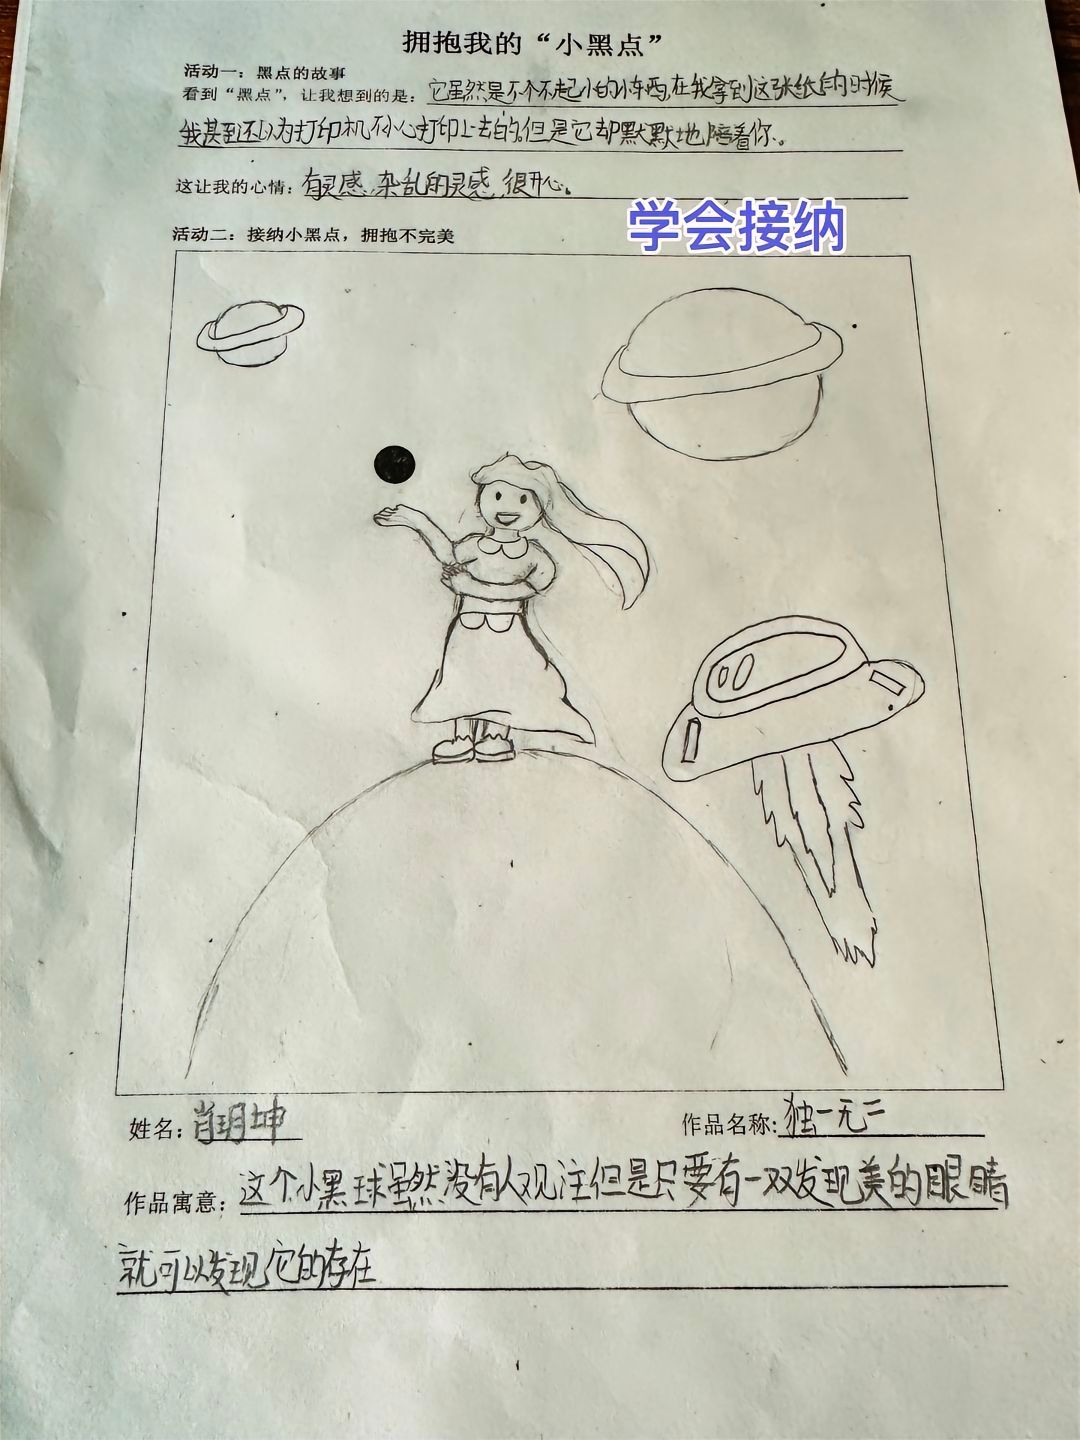 拥抱我的“小黑点”
活动一：黑点的故事
看到“黑点”，让我想到的是：它虽然是不个不起小的小东西,在我拿到这张纸的时候
我甚至还以为打印机不小心打印上去的,但是它却默默地陪着你。
这让我的心情：有灵感,杂乱的灵感,很开心。
学会接纳
活动二：接纳小黑点，拥抱不完美
姓名：肖玥坤
作品名称:独一无二
作品寓意：这个小黑球虽然没有人观注但是只要有一双发现美的眼睛
就可以发现它的存在